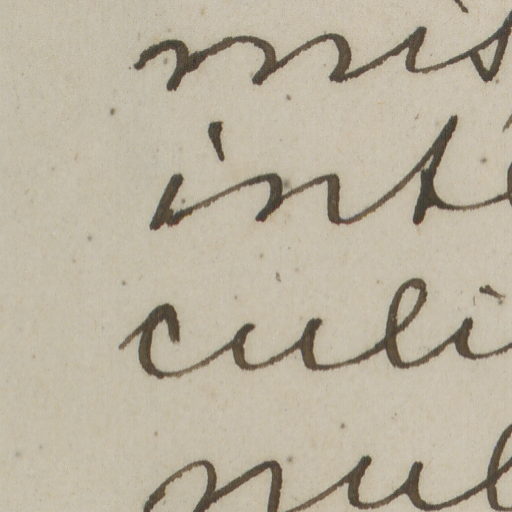 mis
int
culi
nul